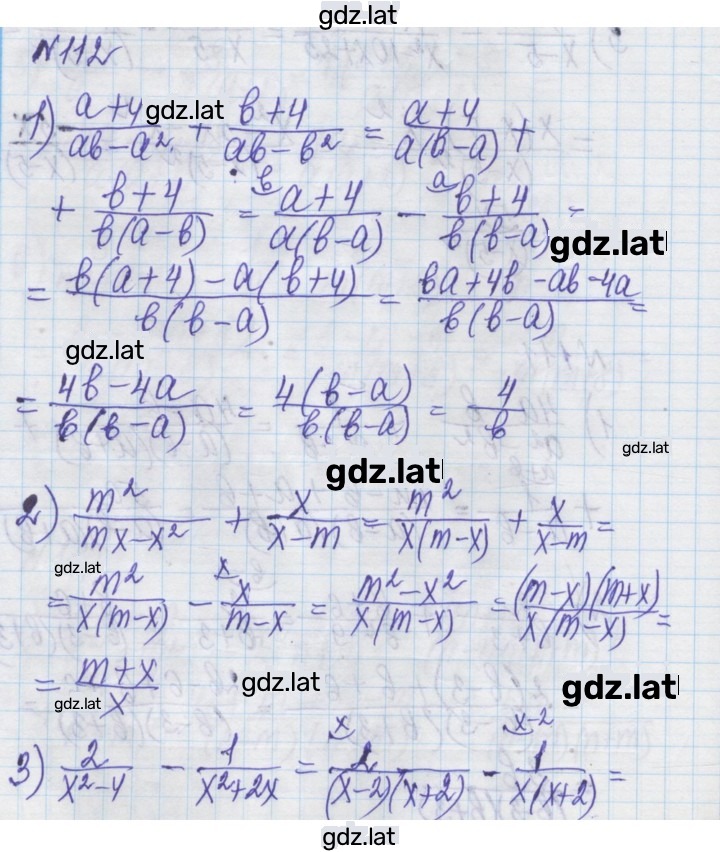 gdz.lat
№112
1) (a+4)/(ab-a²) + (b+4)/(ab-b²) = (a+4)/(a(b-a)) +
gdz.lat
+ (b+4)/(b(a-b)) = (a+4)/(a(b-a)) ᵇ - (b+4)/(b(b-a)) ᵃ =
gdz.lat
= (b(a+4)-a(b+4))/(b(b-a)) = (ba+4b-ab-4a)/(b(b-a)) =
gdz.lat
= (4b-4a)/(b(b-a)) = 4(b-a)/(b(b-a)) = 4/b
gdz.lat
gdz.lat
2) m²/(mx-x²) + x/(x-m) = m²/(x(m-x)) + x/(x-m) =
gdz.lat
= m²/(x(m-x)) - x/(m-x) ˣ = (m²-x²)/(x(m-x)) = (m-x)(m+x)/(x(m-x)) =
= (m+x)/x
gdz.lat
gdz.lat
gdz.lat
3) 2/(x²-4) - 1/(x²+2x) = 2/((x-2)(x+2)) ˣ - 1/(x(x+2)) ˣ⁻² =
gdz.lat